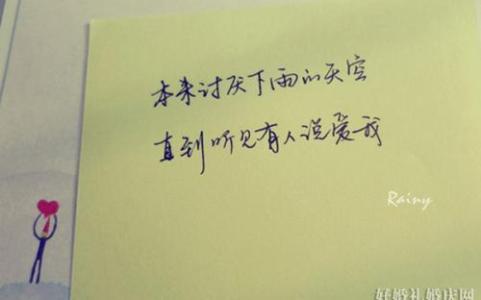 本来讨厌下雨的天空
直到听见有人说爱我
Rainy
好婚礼婚庆网